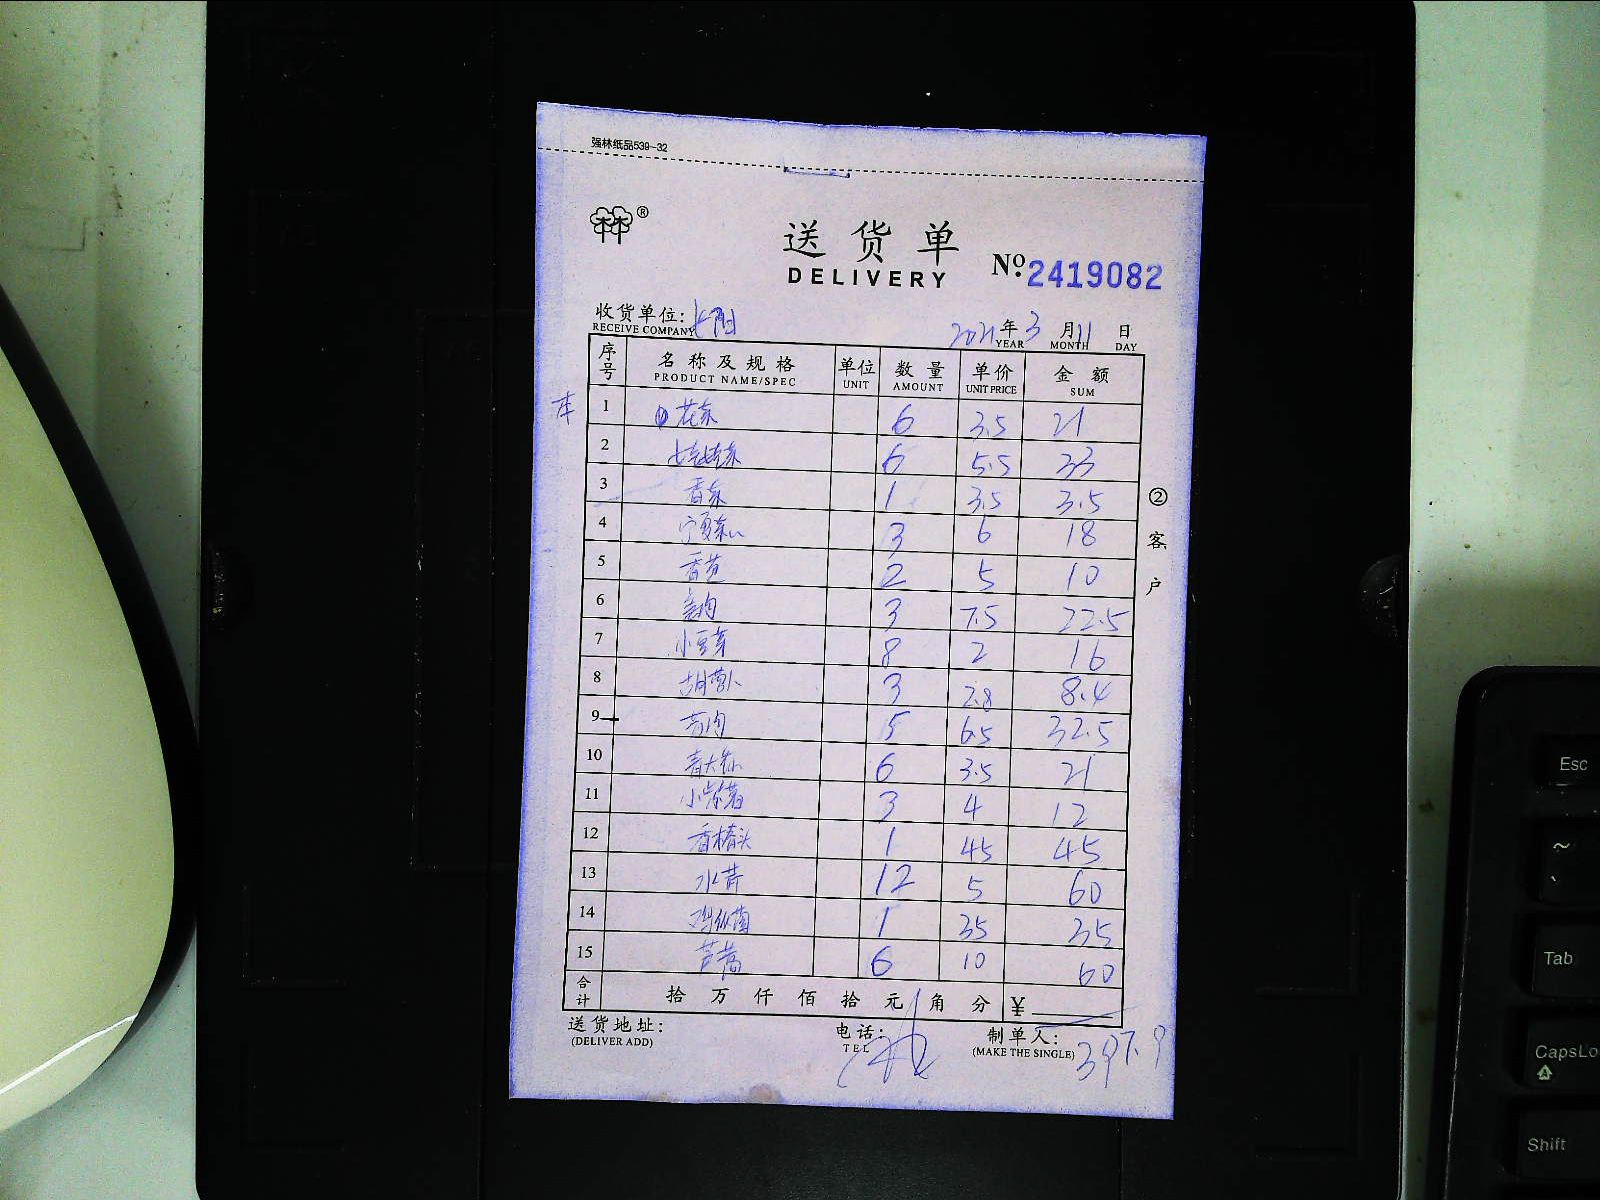 强林纸品539-32
®
送货单
DELIVERY
Nº:2419082
收货单位:
RECEIVE COMPANY
2021年3月11日
YEAR MONTH DAY
序号 名称及规格 单位 数量 单价 金额
PRODUCT NAME/SPEC UNIT AMOUNT UNIT PRICE SUM
本
1 花菜 6 3.5 21
2 6 5.5 33
3 香菜 1 3.5 3.5
4 宁夏菜心 3 6 18
5 香芹 2 5 10
6 3 7.5 22.5
7 小豆芽 8 2 16
8 胡萝卜 3 2.8 8.4
9 5 6.5 32.5
10 6 3.5 21
11 3 4 12
12 香椿头 1 45 45
13 水芹 12 5 60
14 鸡枞菌 1 35 35
15 芦蒿 6 10 60
合计 拾 万 仟 佰 拾 元 角 分 ¥
397.9
送货地址:
(DELIVER ADD)
电话:
TEL
制单人:
(MAKE THE SINGLE)
②客户
Esc
~
Tab
CapsLo
A
Shift